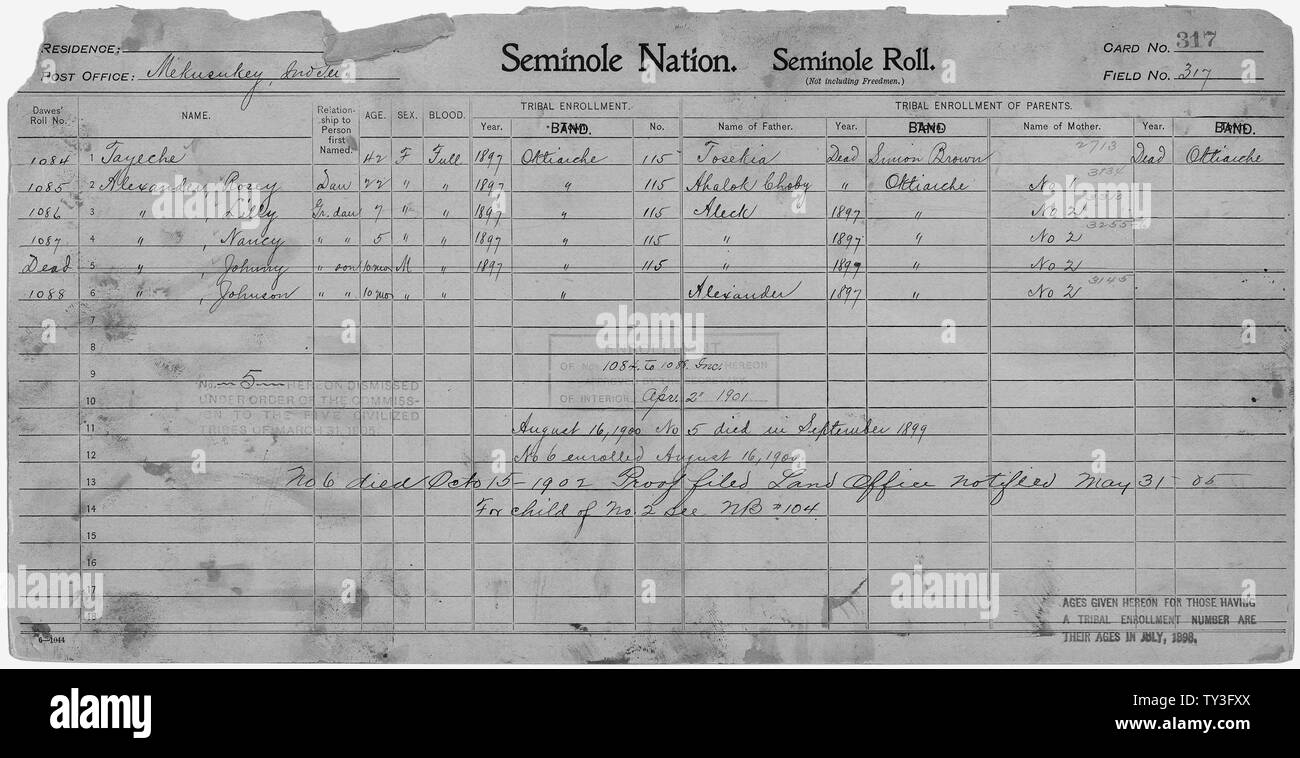 RESIDENCE:
POST OFFICE: Mekusukey, Ind Ter
Seminole Nation. Seminole Roll.
(Not including Freedmen.)
CARD NO. 317
FIELD NO. 317
Dawes' Roll No. NAME. Relationship to Person first Named. AGE. SEX. BLOOD. TRIBAL ENROLLMENT. TRIBAL ENROLLMENT OF PARENTS.
Year. BAND. No. Name of Father. Year. BAND. Name of Mother. Year. BAND.
2713
1084 1 Tayeche 42 F Full 1897 Oktiarche 115 Tosekia Dead Simon Brown Dead Oktiarche
3134
1085 2 Alexander, Rosey Dau 22 " " 1897 " 115 Ahalok Choby " Oktiarche No 1
1086 3 " , Lilly Gr. dau 7 " " 1897 " 115 Aleck 1897 " No 2
3255
1087 4 " , Nancy " " 5 " " 1897 " 115 " 1897 " No 2
Dead 5 " , Johnny " son 10 mos M " 1897 " 115 " 1897 " No 2
3145
1088 6 " , Johnson " " 10 mos " " " Alexander 1897 " No 2
7
8
ENROLLMENT
9
OF NOS. 1084 to 1088 Inc. HEREON
No. 5 HEREON DISMISSED
UNDER ORDER OF THE COMMISS-
10
OF INTERIOR Apr. 2 1901
ION TO THE FIVE CIVILIZED
TRIBES OF MARCH 31, 1905.
11 August 16, 1900 No 5 died in September 1899
12 No 6 enrolled August 16, 1900
13 No 6 died Oct 15-1902 Proof filed Land Office notified May 31 05
14 For child of No. 2 see NB #104
15
16
17
18
AGES GIVEN HEREON FOR THOSE HAVING
A TRIBAL ENROLLMENT NUMBER ARE
THEIR AGES IN JULY, 1898.
6—1044
alamy
alamy
Image ID: TY3FXX
www.alamy.com